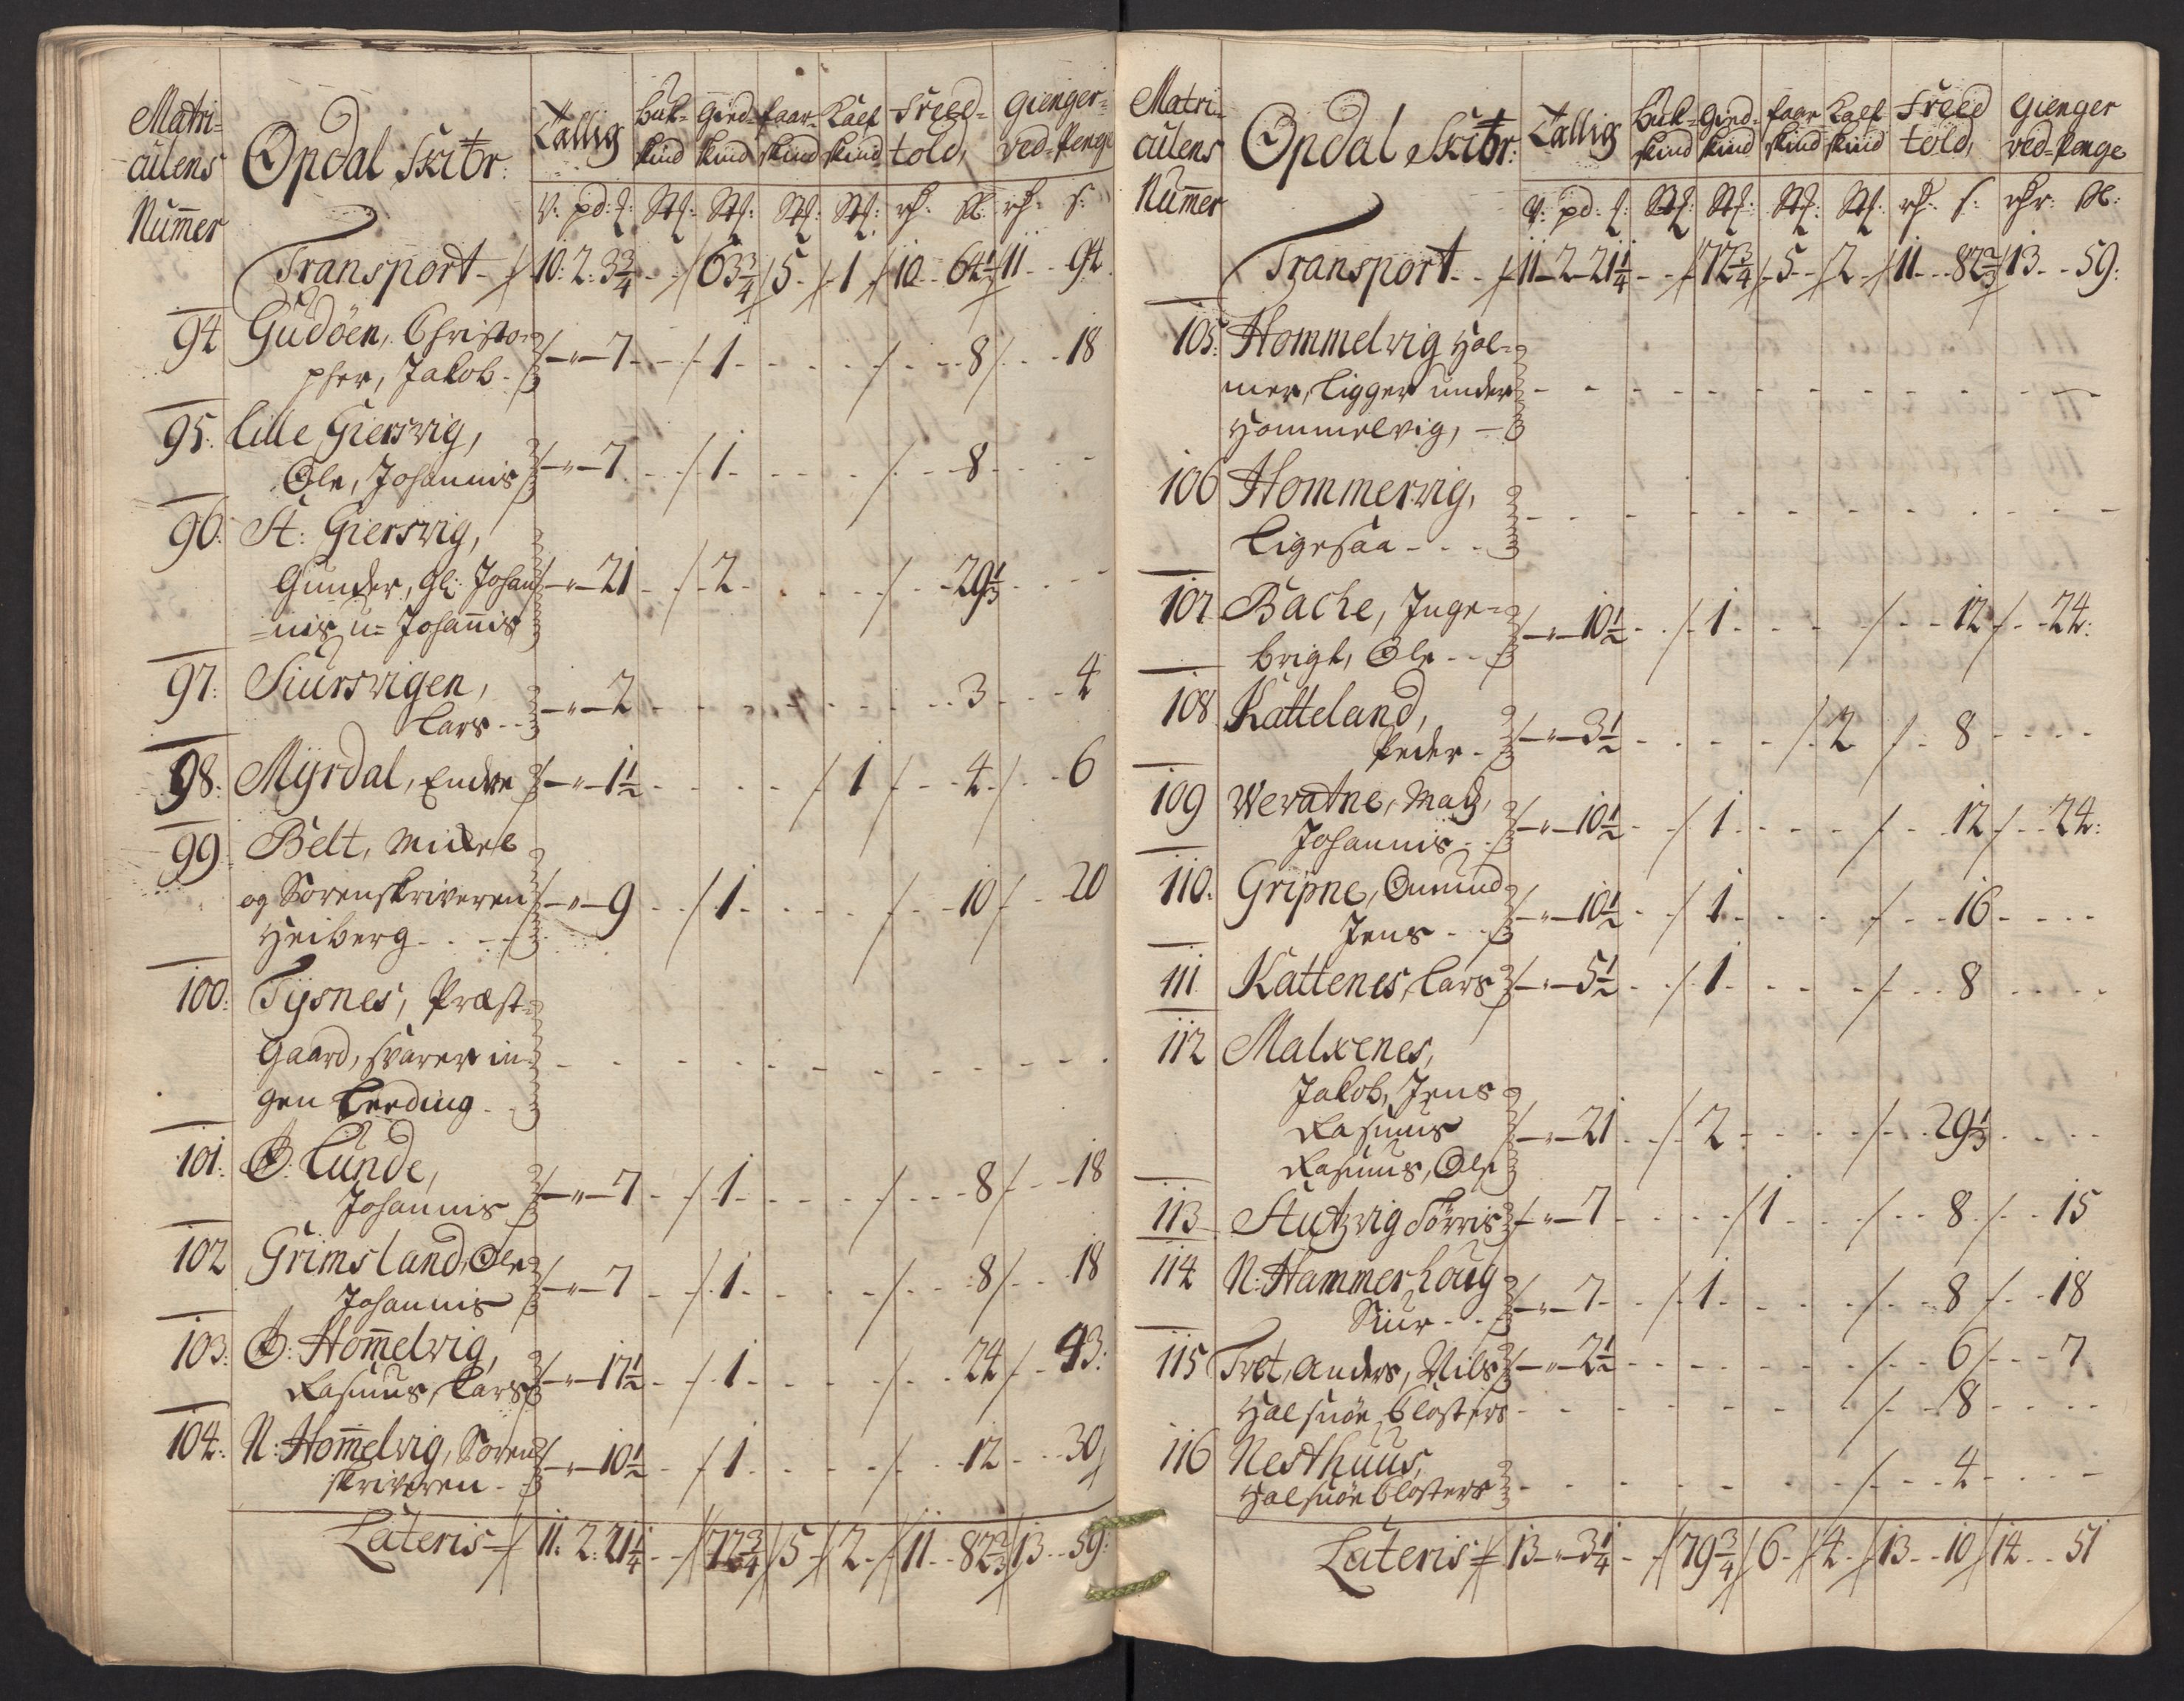 Matri-
culens
Nummer
Opdal Skibr:
Tallig
Buk-
skind
Gied-
skind
faar-
skind
Kalf
skind
Freed-
told,
Gienger-
ved-Penge
V: pd: l: Stk: Stk: Stk: Stk: rh: sk: rh: s:
Transport - 10: 2: 3 3/4 - - 63 3/4 5 - 1 10 - 64 1/3 11 - 94
94 Gudöen, Christo-
pher, Jakob - - " - 7 - - 1 - - - - - 8 - - 18
95: Lille Giersvig,
Ole, Johannis - " - 7 - - 1 - - - - - 8 - - -
96: St: Giersvig,
Gunder, gl: Johan
=nis u= Johannis - " - 21 - - 2 - - - - - 29 1/3 - - -
97: Siursvigen,
Lars - - - " - 2 - - - - - - - 3 - - 4
98: Myrdal, Endre - " - 1 1/2 - - - - - 1 - - 4 - - 6
99 Belt, Mickel
og Sorenskriveren
Heiberg - - - - " - 9 - - 1 - - - - - 10 - - 20
100: Tysnes, Præst-
Gaard, svarer in-
gen Leeding - - - - - - - - -
101: Ø: Lunde,
Johannis - " - 7 - - 1 - - - - - 8 - - 18
102 Grimsland, Ole
Johannis - " - 7 - - 1 - - - - - 8 - - 18
103: Ø: Hommelvig,
Rasmus, Lars - " - 17 1/2 - - 1 - - - - - 24 - - 43:
104: N: Hommelvig, Soren
skriveren - - " - 10 1/2 - - 1 - - - - - 12 - - 30
Lateris - 11: 2: 21 1/4 - - 72 3/4 5 - 2 - 11 - - 82 2/3 13 - - 59:
Matri-
culens
Nummer
Opdal Skibr:
Tallig
Buk-
skind
Gied-
skind
faar
skind
Kalf
skind
Freed
told,
Gienger
ved-Penge
V: pd: l: Stk: Stk: Stk: Stk: rh: s: rhr: sk:
Transport - - 11 - 2 - 21 1/4 - - 72 3/4 - 5 - 2 - 11 - - 82 2/3 13 - - 59:
105: Hommelvig Hol-
mer, Ligger under
Hommelvig, - - - - - - - -
106 Hommervig,
Ligesaa - - - - - - - - -
107 Bache, Inge-
brigt, Ole - - - " - 10 1/2 - - 1 - - - - - 12 - - 24:
108 Katteland,
Peder - - " - 3 1/2 - - - - - 2 - - 8 - - -
109 Weratne, Mads,
Johannis - - - " - 10 1/2 - - 1 - - - - - 12 - - 24:
110: Gripne, Omund
Jens - - - " - 10 1/2 - - 1 - - - - - 16 - - -
111 Kattenes, Lars - " - 5 1/2 - - 1 - - - - - 8 - - -
112 Malxenes,
Jakob, Jens
Rasmus
Rasmus, Ole - " - 21 - - 2 - - - - - 29 1/3 - - -
113 Stutzvig Törris - " - 7 - - - - 1 - - - 8 - - 15
114 N: Hammerhoug
Siur - - - " - 7 - - 1 - - - - - 8 - - 18
115 Tvet, Anders, Nils - " - 2 1/2 - - - - - - - 6 - - 7
Halsnöe Closters - - - - - - - 8 - - -
116 Nesthuus,
Halsnöe Closters - - - - - - - 4 - - -
Lateris - 13 - " - 3 1/4 - - 79 3/4 6 - 4 - 13 - - 10 14 - - 51